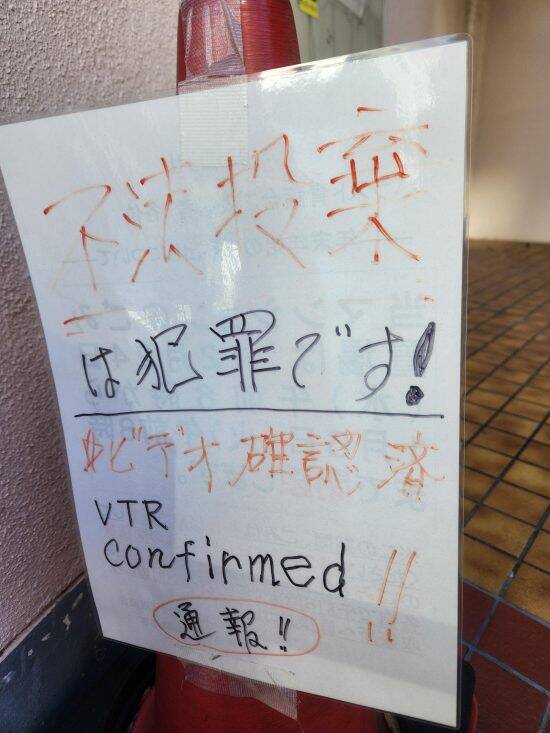 不法投棄
は犯罪です!
ビデオ確認済
VTR
confirmed!!
通報!!